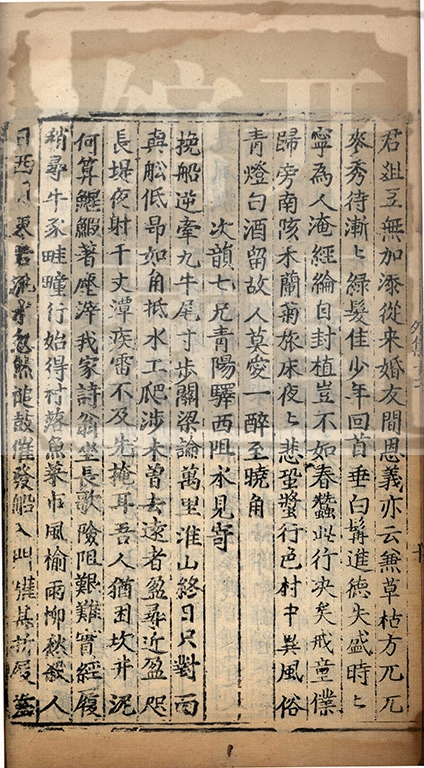 君俎豆無加添從來婚友間恩義亦云兼草枯方兀兀
麥秀待漸〻綠髮佳少年回首垂白髯進德失盛時〻
寧為人淹經綸自封植豈不如春蠶此行决矣戒童僕
歸旁南陔木蘭菊旅床夜〻悲蛩螿行邑村中異風俗
青燈白酒留故人莫愛一醉至曉角
次韻七兄青陽驛西阻水見寄
挽船逆牽九牛尾寸步關梁論萬里淮山終日只對面
與舩低昂如角抵水工爬涉未曽去遠者盈尋近盈咫
長堤夜射千丈潭疾雷不及先掩耳吾人猶困坎井泥
何算鰕著塵滓我家詩翁坐長歌險阻艱難實經履
稍尋牛豕畦畽行始得村落魚市風榆雨柳愁殺人
日西忽然鼓催發船入此其折屐